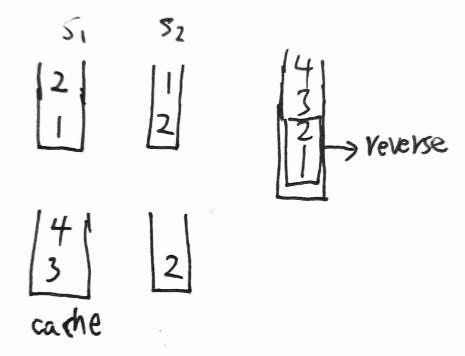 S₁ S₂
2 1 4
1 2 3
2
1 reverse
4
3 2
cache